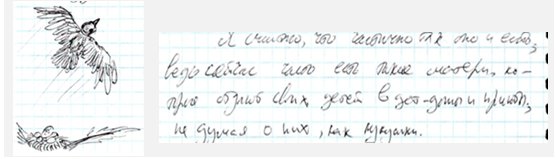 Я считаю, что частично так оно и есть,
ведь сейчас мало ест такие матери, ко-
торые отдают своих детей в дет-дома и приюты,
не думая о них, как кукушки.